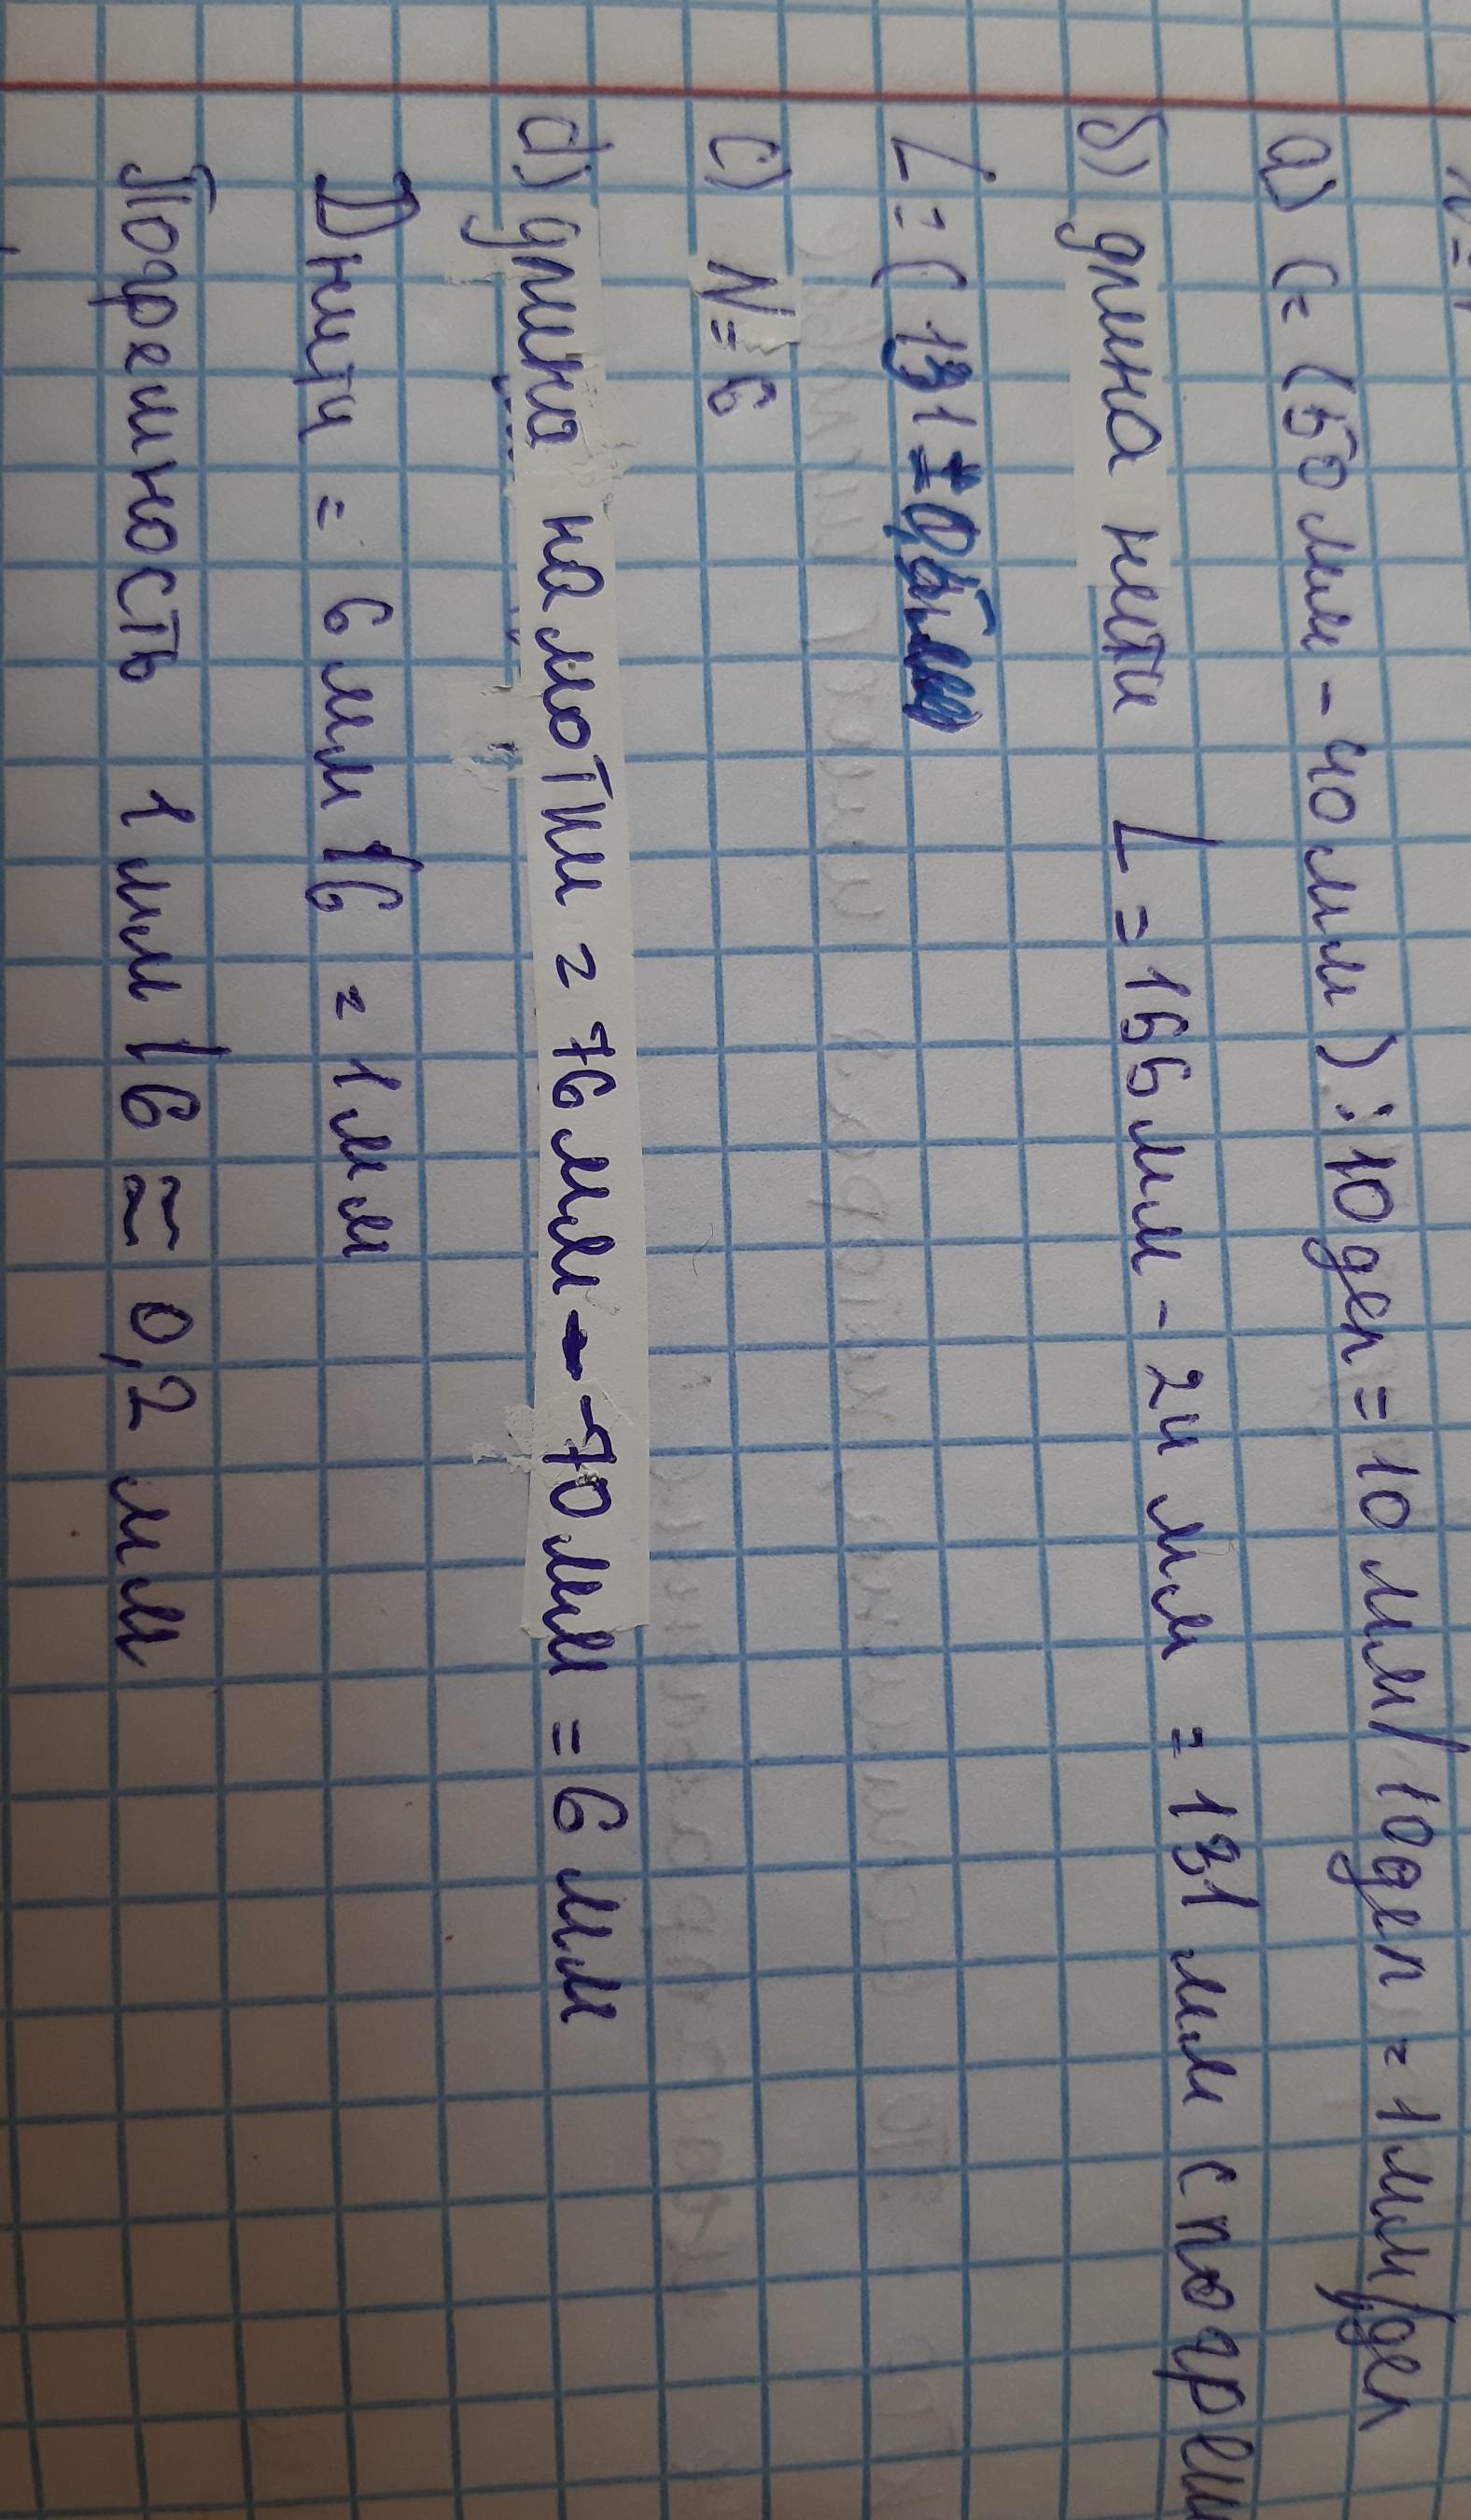 а) С = (50 мм - 40 мм) : 10 дел = 10 мм / 10 дел = 1 мм/дел
б) длина нити L = 155 мм - 24 мм = 131 мм с погреш
L = (131 ±
с) N = 6
d) длина намотки = 76 мм - 70 мм = 6 мм
Днити = 6 мм / 6 = 1 мм
Погрешность 1 мм / 6 ≈ 0,2 мм